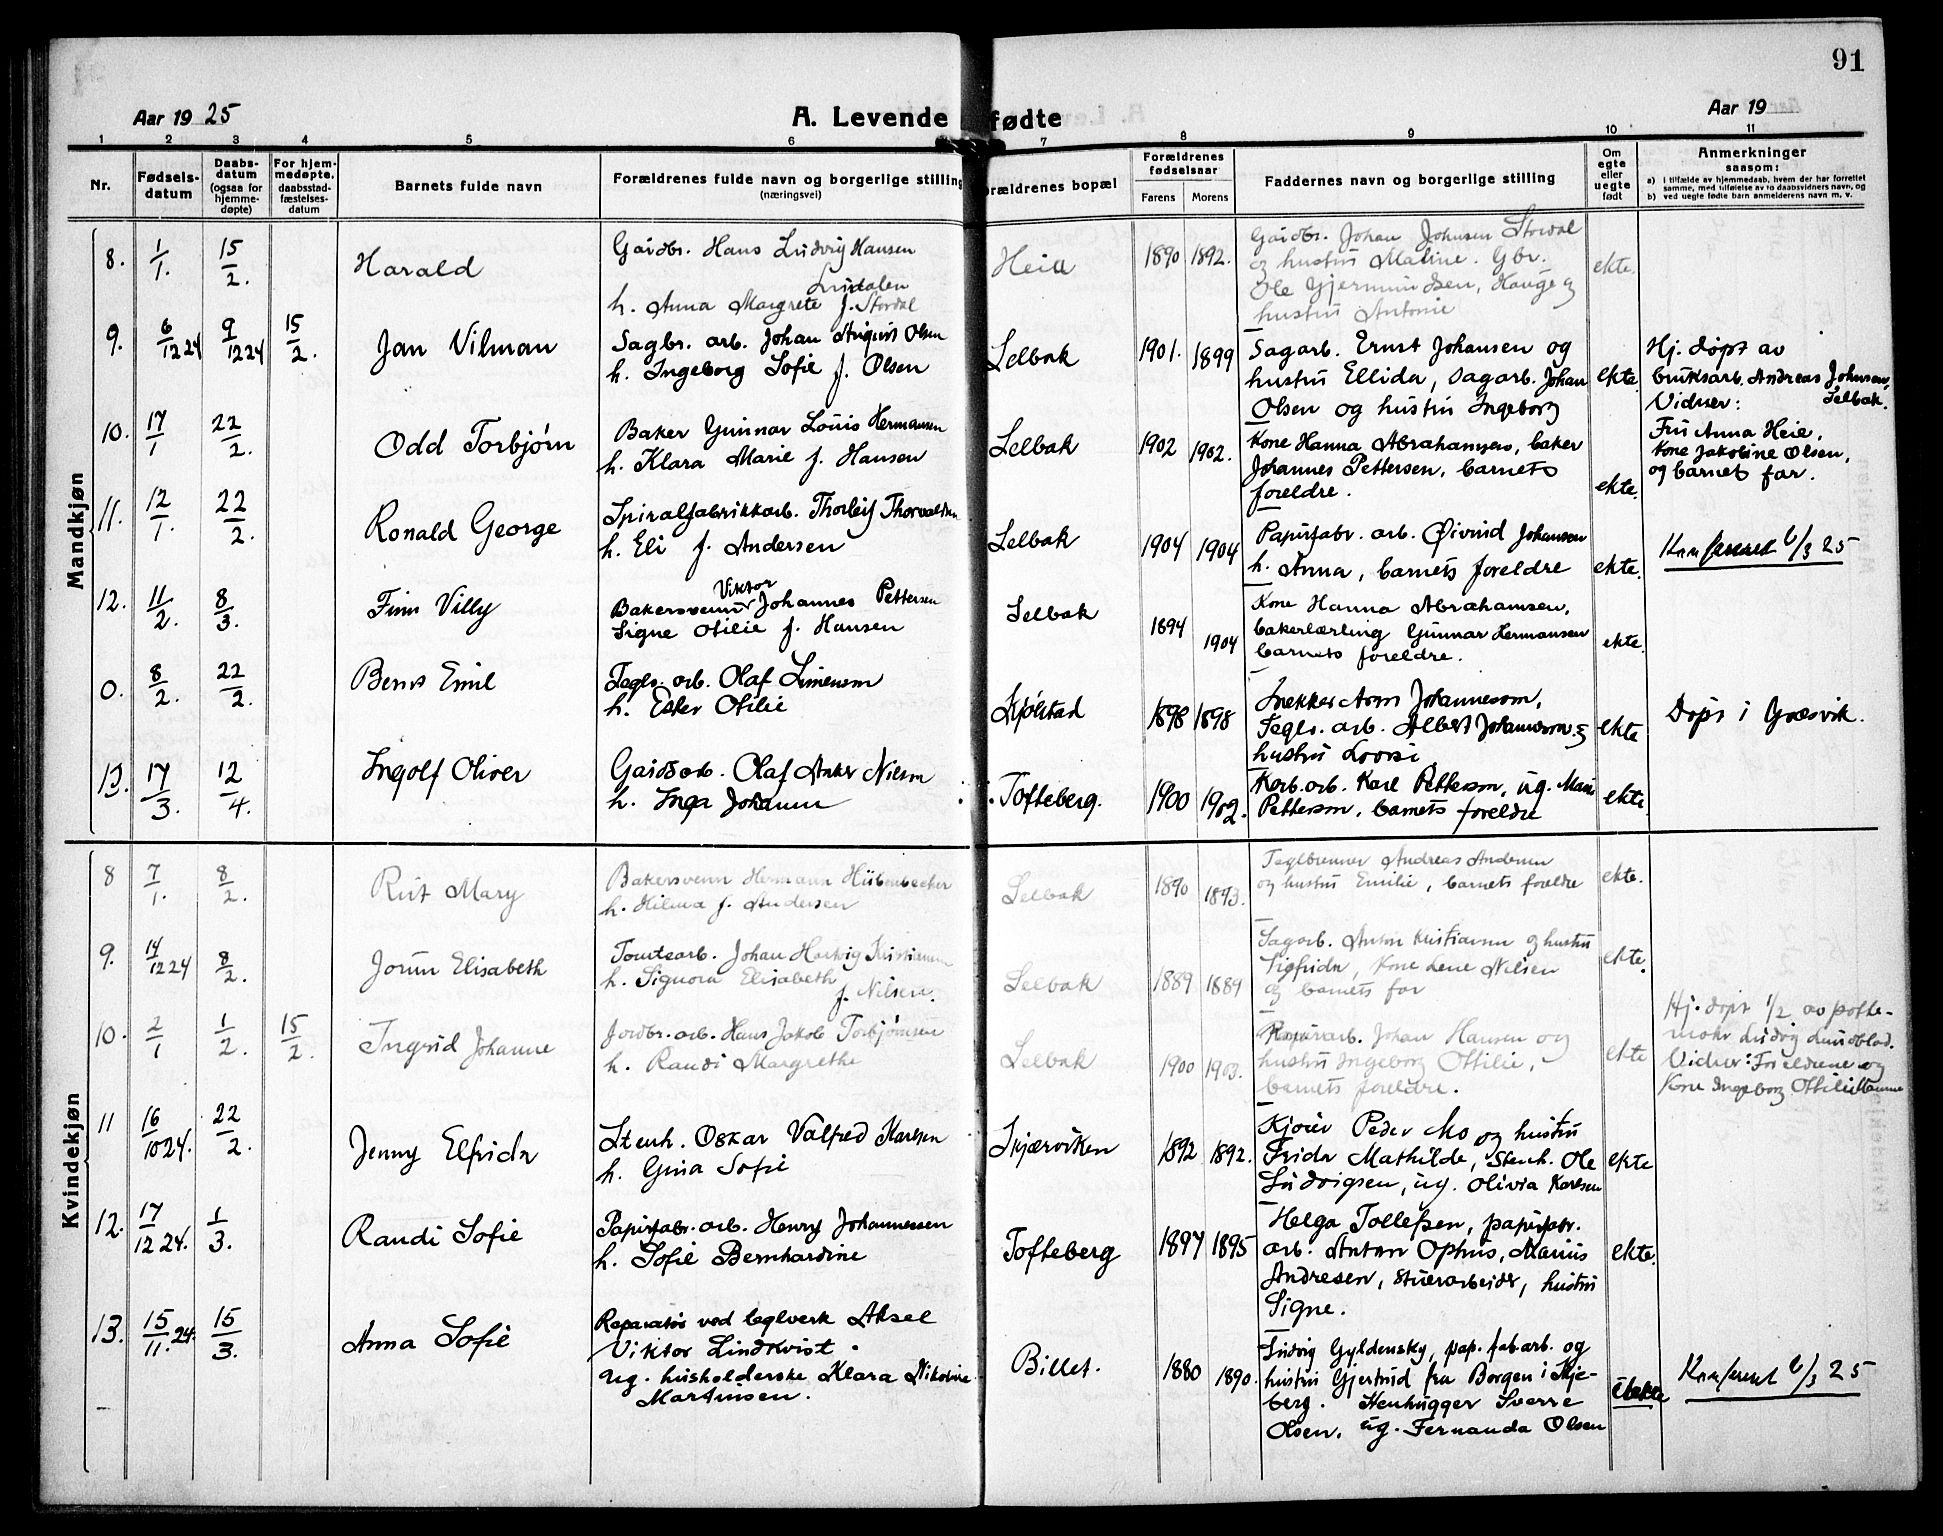 91
Aar 19 25
A. Levende fødte
Aar 19
1 2 3 4 5 6 7 8 9 10 11
Nr.
Fødsels-
datum
Daabs-
datum
(ogsaa for
hjemme-
døpte)
For hjem-
medøpte.
daabsstad-
fæstelses-
datum
Barnets fulde navn
Forældrenes fulde navn og borgerlige stilling
(næringsvei)
Forældrenes bopæl
Forældrenes
fødselsaar
Farens Morens
Faddernes navn og borgerlige stilling
Om
egte
eller
uegte
født
Anmerkninger
saasom:
a) i tilfælde av hjemmedaab, hvem der har forrettet
samme, med tilføielse av to daabsvidners navn, og
b) ved uegte fødte barn anmelderens navn m. v.
Mandkjøn
8. 1/1. 15/2. Harald
Gaidbr. Hans Ludvig Hansen
Lisdalen
h. Anna Margrete f. Stordal
Heia 1890 1892.
Gaidbr. Johan Johnsen Stordal
og hustru Maline. Gbr.
Ole Gjermundsen, Hauge og
hustru Antonie
ekte.
9. 6/12 24 9/12 24 15/2. Jan Vilman
Sagbr. arb. Johan August Olsen
h. Ingeborg Sofie f. Olsen
Selbak 1901. 1899
Sagarb. Ernst Johansen og
hustru Ellida, sagarb. Johan
Olsen og hustru Ingeborg
ekte.
Hj. døpt av
bruksarb. Andreas Johnsen,
Selbak.
Vidner:
Fru Anna Heie,
Kone Jakobine Olsen,
og barnets far.
10. 17/1 22/2. Odd Torbjørn
Baker Gunnar Louis Hermansen
h. Klara Marie f. Hansen
Selbak 1902 1902.
Kone Hanna Abrahamsen, baker
Johannes Pettersen, barnets
foreldre.
ekte.
11. 12/1. 22/2. Ronald George
Spiralfabrikkarb. Thorleif Thorvaldsen
h. Eli f. Andersen
Selbak 1904 1904
Papirfabr. arb. Øivind Johansen
h. Anna, barnets foreldre
ekte.
Kanfereret 6/3 25
12. 11/2. 8/3. Finn Villy
Viktor
Bakersvenn Johannes Pettersen
Signe Otilie f. Hansen
Selbak 1894 1904
Kone Hanna Abrahamsen,
bakerlærling Gunnar Hermansen
barnets foreldre.
ekte.
0. 8/2. 22/2. Bernt Emil
Tegls. arb. Olaf Simensen
h. Ester Otilie
Kjølstad 1898 1898
Snekker Arnt Johannesson,
Tegls. arb. Albert Johannesson og
hustru Lovise
ekte
Døpt i Græsvik.
13. 17/3. 12/4. Ingolf Oliver
Gaidsarb. Olaf Anker Nilsen
h. Inga Johanne
Tofteberg. 1900 1902.
Karb. arb. Karl Petterson, ug. Marie
Petterson, barnets foreldre
ekte
Kvindekjøn
8 7/1. 8/2. Rut Mary
Bakersvenn Hermann Hübenbecker
h. Hilma f. Andersen
Selbak 1890 1893.
Teglbrenner Andreas Andersen
og hustru Emilie, barnets foreldre
ekte.
9. 14/12 24 8/2. Jorun Elisabeth
Tomtearb. Johan Hartvig Kristiansen
h. Signora Elisabeth
f. Nilsen.
Selbak 1889 1889
Sagarb. Anton Kristiansen og hustru
Sigfrida, Kone Lene Nilsen
og barnets far
ekte.
10. 2/1 1/2. 15/2. Ingrid Johanne
Jordbr. arb. Hans Jakob Torbjørnsen
h. Randi Margrethe
Selbak 1900 1903.
Papirarb. Johan Hansen og
hustru Ingeborg Ottilie,
barnets foreldre.
ekte
Hj. døpt 1/2 av potte-
maker Ludvig Lundblad.
Vidner: Foreldrene og
Kone Ingeborg Ottilie Hansen
11 16/10 24. 22/2. Jenny Elfrida
Stenh. Oskar Valfred Karlsen
h. Gina Sofie
Skjærviken 1892 1892.
Kjører Peder Mo og hustru
Frida Mathilde, Stenh. Ole
Ludvigsen, ug. Olivia Karlsen
ekte
12. 17/12 24. 1/3. Randi Sofie
Papirfabr. arb. Henry Johannessen
h. Sofie Bernhardine
Tofteberg 1897 1895
Helga Tollefsen, papirfabr.
arb. Anton Ophus, Marius
Andresen, stuerarbeider, hustru
Signe.
ekte.
13. 15/11. 24. 15/3. Anna Sofie
Reparatør ved teglverk Aksel
Viktor Lindkvist.
ug. husholderske Klara Nikoline
Martinsen.
Billet. 1880 1890.
Ludvig Gyldensky, pap. fab. arb. og
hustru Gjertrud fra Borgen i Skje-
berg. Stenhugger Sverre
Olsen. ug. Fernanda Olsen
uekte
Kanfereret 6/3 25